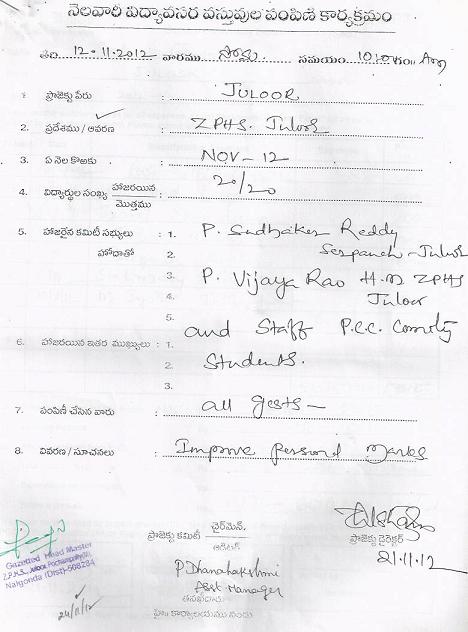 నెలవారీ విద్యావసర వస్తువుల పంపిణి కార్యక్రమం
తేది 12-11-2012 వారము సోమ సమయం 10:00 గం॥ Am
1. ప్రాజెక్టు పేరు : JULOOR
2. ప్రదేశము / ఆవరణ : ZPHS. Juloor
3. ఏ నెల కొఱకు : NOV-12
4. విద్యార్థుల సంఖ్య హాజరయిన / మొత్తము : 20/20
5. హాజరైన కమిటీ సభ్యులు : 1. P. Sudhaker Reddy
హోదాతో 2. Serpanch - Juloor
3. P. Vijaya Rao H.M ZPHS
4. Juloor
5.
6. హాజరయిన ఇతర ముఖ్యులు : 1. and Staff P.C.C.
2. Students.
3.
7. పంపిణీ చేసిన వారు : all gests -
8. వివరణ / సూచనలు : Improve personal marks
ప్రాజెక్టు కమిటీ చైర్మెన్.
ఆడిటర్
ప్రాజెక్టు డైరెక్టర్
21.11.12
P Dhanalakshmi
Asst Manager
Gazetted Head Master
Z.P.H.S., Juloor, Pochampally(M),
Nalgonda (Dist)-508284
24/11/12